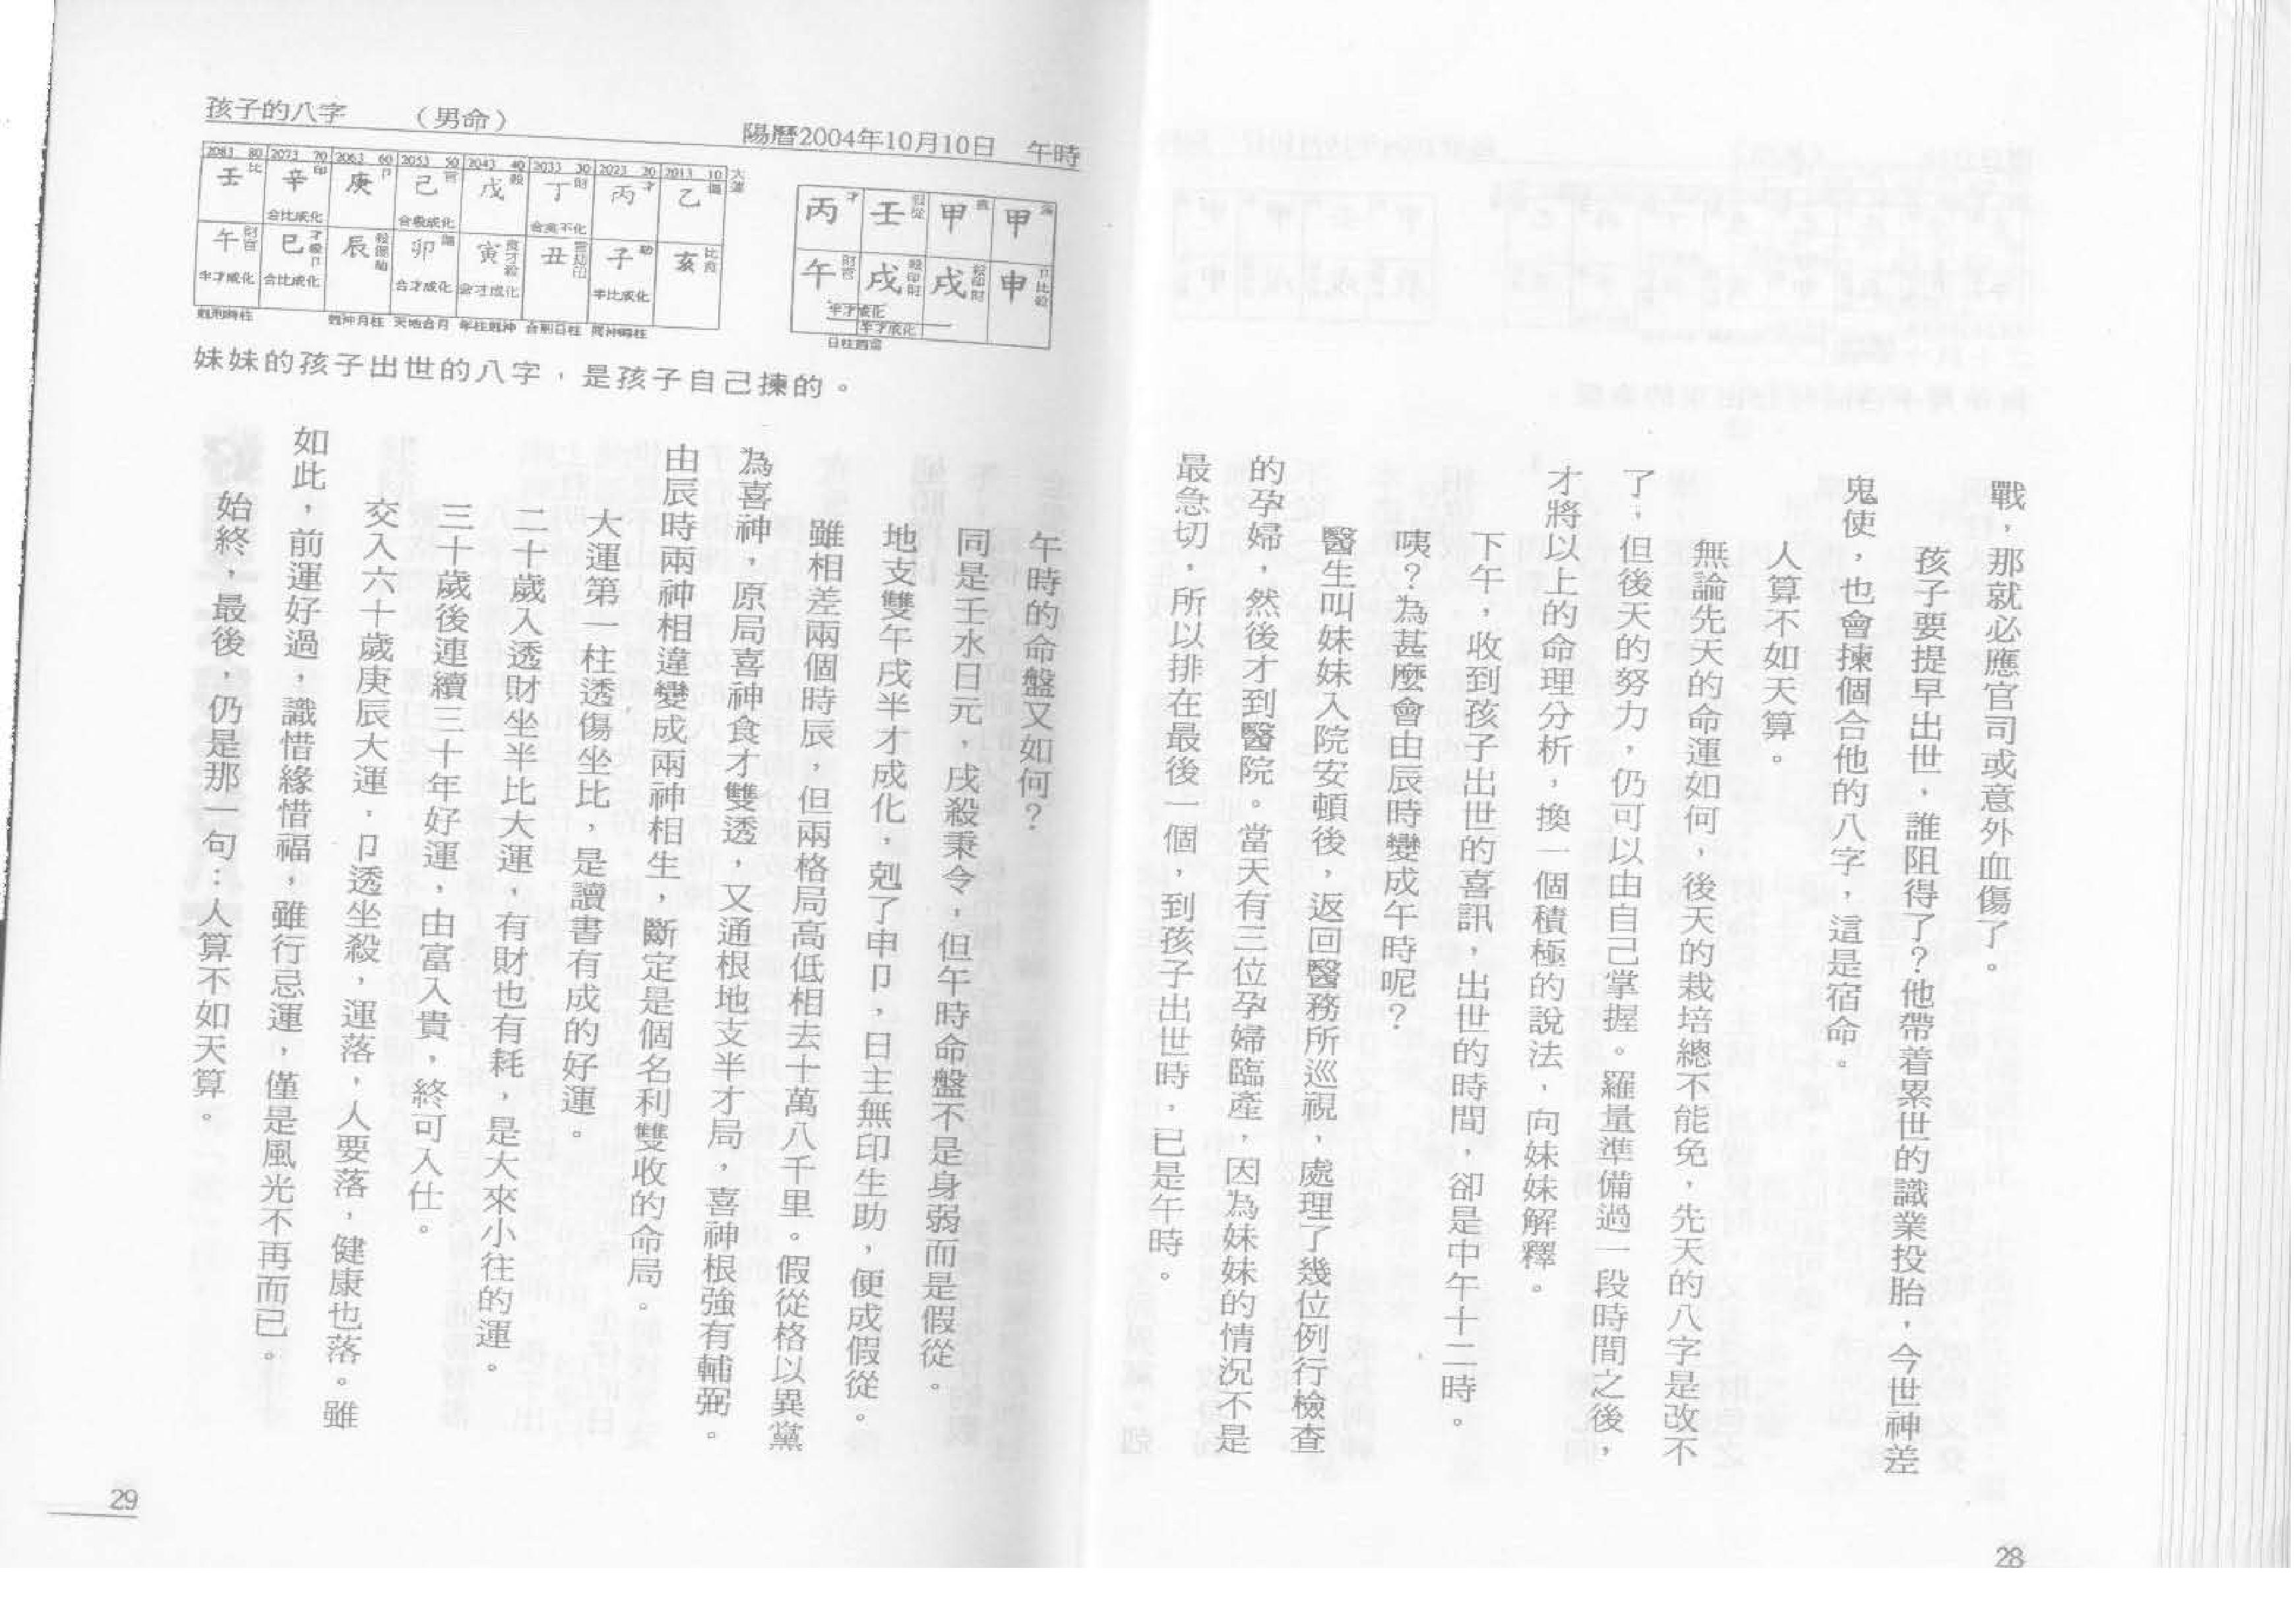 戰，那就必應官司或意外血傷了。
孩子要提早出世，誰阻得了？他帶着累世的識業投胎，今世神差
鬼使，也會揀個合他的八字，這是宿命。
人算不如天算。
無論先天的命運如何，後天的栽培總不能免，先天的八字是改不
了，但後天的努力，仍可以由自己掌握。羅量準備過一段時間之後，
才將以上的命理分析，換一個積極的說法，向妹妹解釋。
下午，收到孩子出世的喜訊，出世的時間，卻是中午十二時。
咦？為甚麼會由辰時變成午時呢？
醫生叫妹妹入院安頓後，返回醫務所巡視，處理了幾位例行檢查
的孕婦，然後才到醫院。當天有三位孕婦臨產，因為妹妹的情況不是
最急切，所以排在最後一個，到孩子出世時，已是午時。
28
孩子的八字　（男命）　陽曆2004年10月10日　午時
丙才 壬假從 甲食 甲
午財官 戌殺印財 戌殺印財 申卩比殺
半才成化
半才成化
大運
2083 80 2073 70 2063 60 2053 50 2043 40 2033 30 2023 20 2013 10
壬比 辛印 庚卩 己官 戊殺 丁財 丙才 乙傷
合比成化 合殺成化
午財官 巳才殺卩 辰 卯傷 寅食才殺 丑官劫印 子劫 亥比食
半才成化 合比成化 合才成化 會才成化 半比成化
剋沖月柱 天地合月 年柱剋沖 合刑日柱
妹妹的孩子出世的八字，是孩子自己揀的。
午時的命盤又如何？
同是壬水日元，戌殺秉令，但午時命盤不是身弱而是假從。
地支雙午戌半才成化，剋了申卩，日主無印生助，便成假從。
雖相差兩個時辰，但兩格局高低相去十萬八千里。假從格以異黨
為喜神，原局喜神食才雙透，又通根地支半才局，喜神根強有輔弼。
由辰時兩神相違變成兩神相生，斷定是個名利雙收的命局。
大運第一柱透傷坐比，是讀書有成的好運。
二十歲入透財坐半比大運，有財也有耗，是大來小往的運。
三十歲後連續三十年好運，由富入貴，終可入仕。
交入六十歲庚辰大運，卩透坐殺，運落，人要落，健康也落。雖
如此，前運好過，識惜緣惜福，雖行忌運，僅是風光不再而已。
始終，最後，仍是那一句：人算不如天算。
29